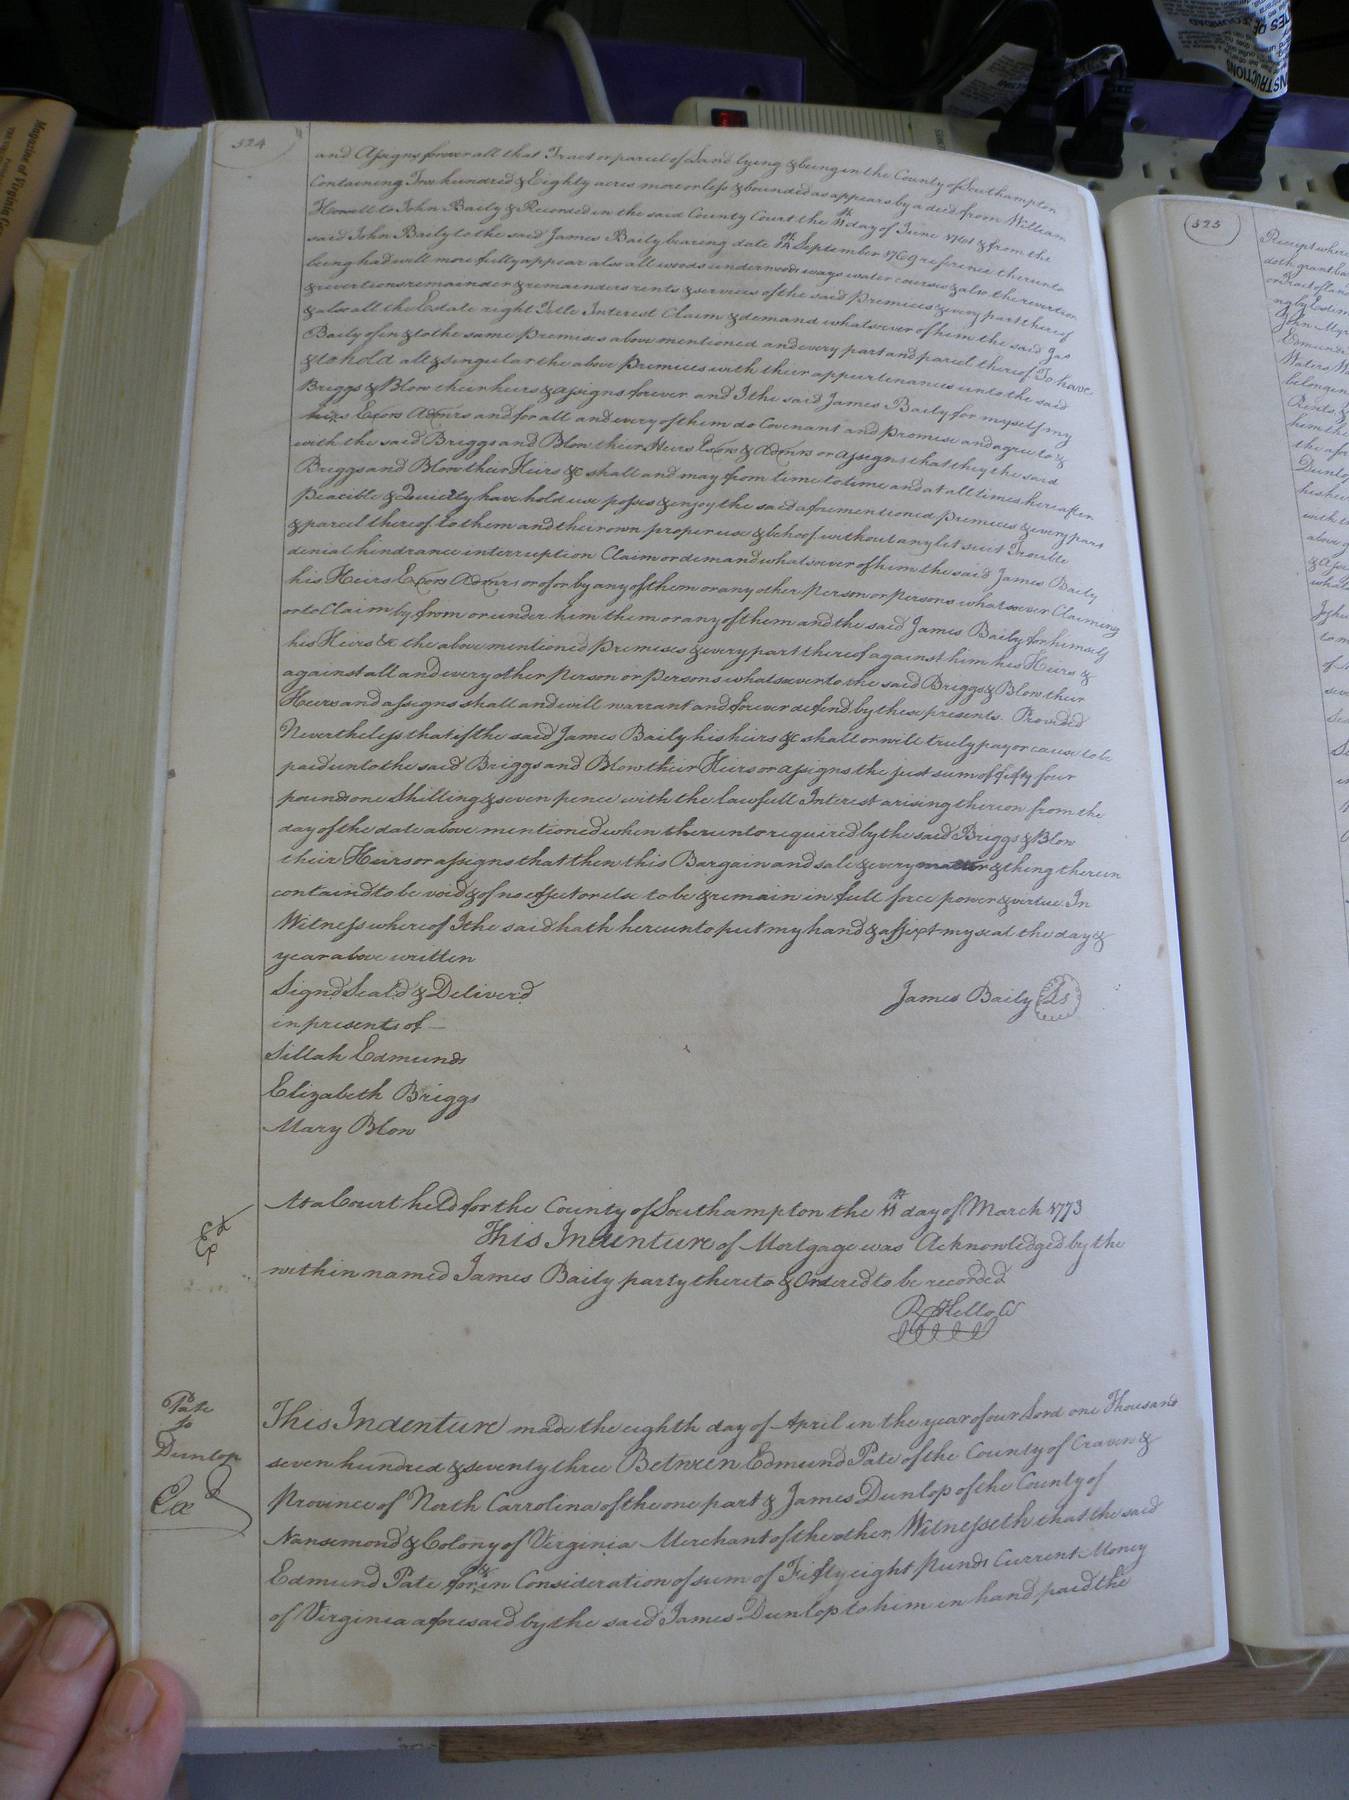 524
and Assigns forever all that Tract or parcel of Land lying & being in the County of Southampton
Containing Two hundred & Eighty acres more or less & bounded as appears by a deed from William
Howell to John Baily & Recorded in the said County Court the 11th day of June 1761 & from the
said John Baily to the said James Baily bearing date 14th September 1769 reference thereunto
being had will more fully appear also all woods underwoods ways water courses & also the revertion
& revertions remainder & remainders rents & services of the said Premises & every part thereof
& also all the Estate right Title Interest Claim & demand whatsoever of him the said Jas
Baily of in & to the same Premises above mentioned and every part and parcel thereof To have
& to hold all & singular the above Premises with their appurtenances unto the said
Briggs & Blow their heirs & assigns forever and I the said James Baily for myself my
heirs Exors Admrs and for all and every of them do Covenant and Promise and agree to &
with the said Briggs and Blow their Heirs Exors & Admrs or assigns that they the said
Briggs and Blow their Heirs &c shall and may from time to time and at all times hereafter
Peacible & Quietly have hold use posses & enjoy the said aforementioned Premises & every part
& parcel thereof to them and their own proper use & behoof without any let suit Trouble
denial hindrance interruption Claim or demand whatsoever of him the said James Baily
his Heirs Exors Admrs or of or by any of them or any other Person or persons whatsoever Claiming
or to Claim by from or under him them or any of them and the said James Baily for himself
his Heirs &c the above mentioned Premises & every part thereof against him his Heirs &
against all and every other Person or Persons whatsoever to the said Briggs & Blow their
Heirs and assigns shall and will warrant and forever defend by these presents. Provided
Nevertheless that if the said James Baily his heirs &c shall or will truly pay or cause to be
paid unto the said Briggs and Blow their Heirs or assigns the just sum of fifty four
pounds one Shilling & seven pence with the lawfull Interest arising thereon from the
day of the date above mentioned when thereunto required by the said Briggs & Blow
their Heirs or assigns that then this Bargain and sale & every matter & thing therein
contain'd to be void & of no effect or else to be & remain in full force power & virtue In
Witness whereof I the said hath hereunto put my hand & affixt my seal the day &
year above written
Signd Seal'd & Deliver'd James Baily Ls
in presents of
Sillah Edmunds
Elizabeth Briggs
Mary Blow
At a Court held for the County of Southampton the 11th day of March 1773
This Indenture of Mortgage was Acknowledged by the
within named James Baily party thereto & Ordered to be recorded
Pate
to
Dunlop
This Indenture made the eighth day of April in the year of our Lord one Thousand
seven hundred & seventy three Between Edmund Pate of the County of Craven &
Province of North Carrolina of the one part & James Dunlop of the County of
Nansemond & Colony of Virginia Merchant of the other Witnesseth that the said
Edmund Pate for & in Consideration of sum of Fifty eight Punds Current Money
of Virginia aforesaid by the said James Dunlop to him in hand paid the
525